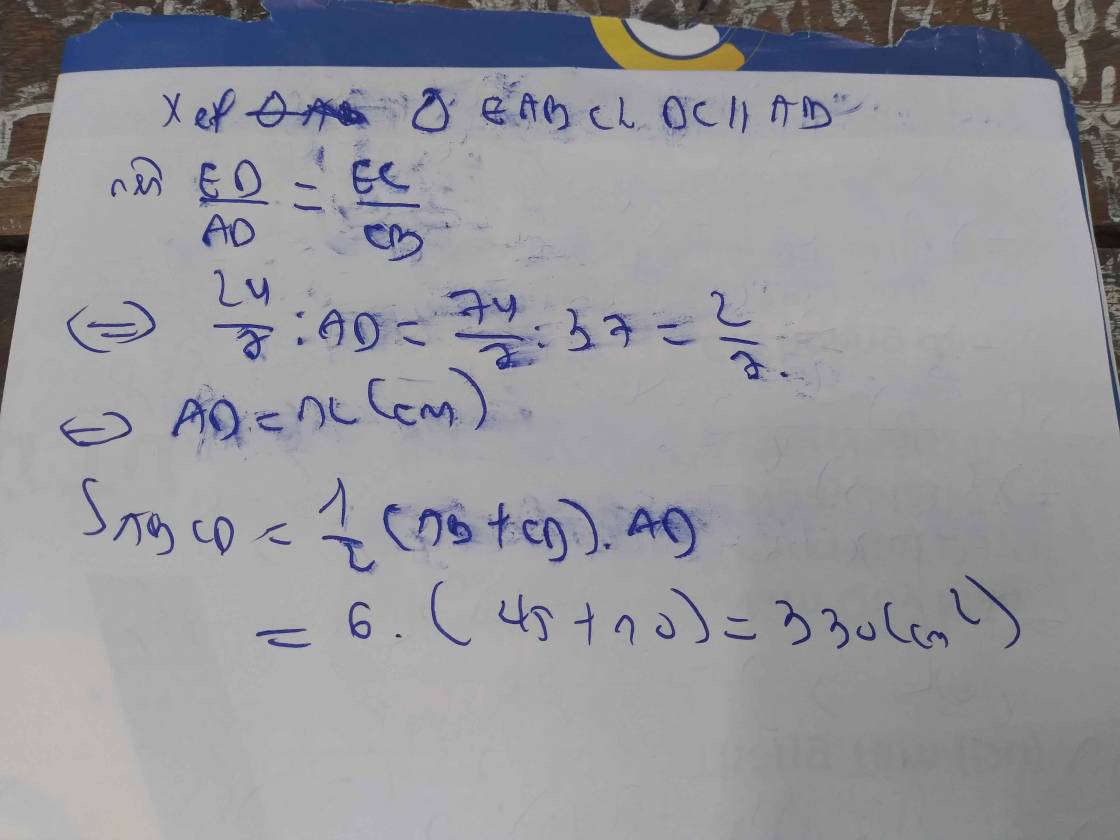 Xét Δ EAB có DC // AB
nên ED/AD = EC/CB
<=> 24/7 : AD = 74/7 : 37 = 2/7.
<=> AD = 12 (cm)
S ABCD = 1/2 (AB + CD). AD
= 6. (45 + 10) = 330 (cm²)